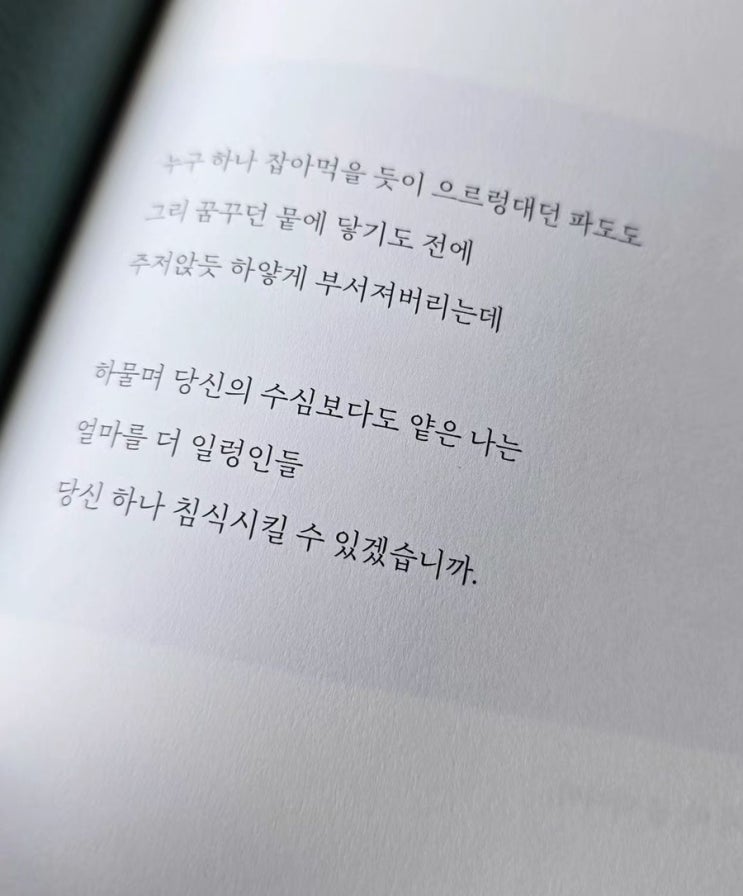 누구 하나 잡아먹을 듯이 으르렁대던 파도도
그리 꿈꾸던 뭍에 닿기도 전에
주저앉듯 하얗게 부서져버리는데
하물며 당신의 수심보다도 얕은 나는
얼마를 더 일렁인들
당신 하나 침식시킬 수 있겠습니까.